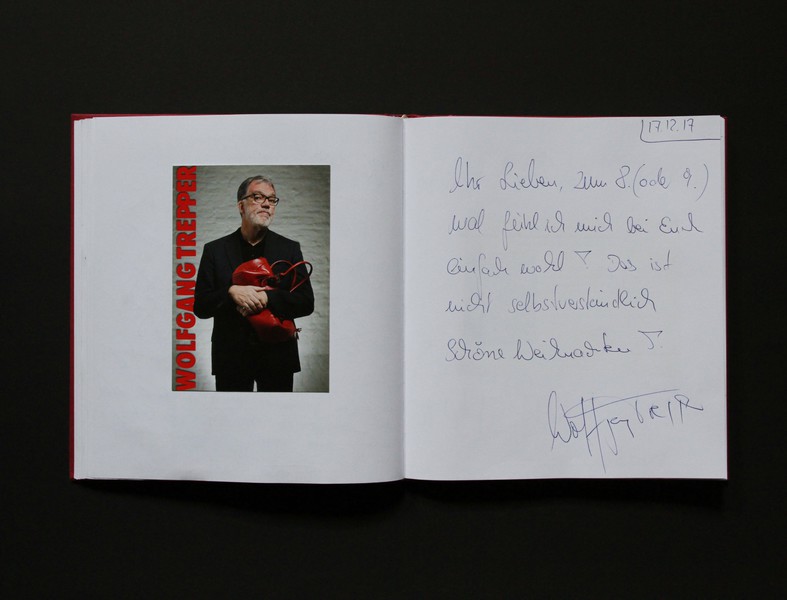 WOLFGANG TREPPER
17.12.17
Ihr Lieben, zum 8. (oder 9.)
mal fühl ich mich bei Euch
einfach wohl! Das ist
nicht selbstverständlich
Schöne Weihnachten!
Wolfgang Trepper